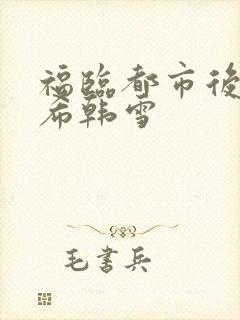 福臨都市後
希韩雪
毛書兵